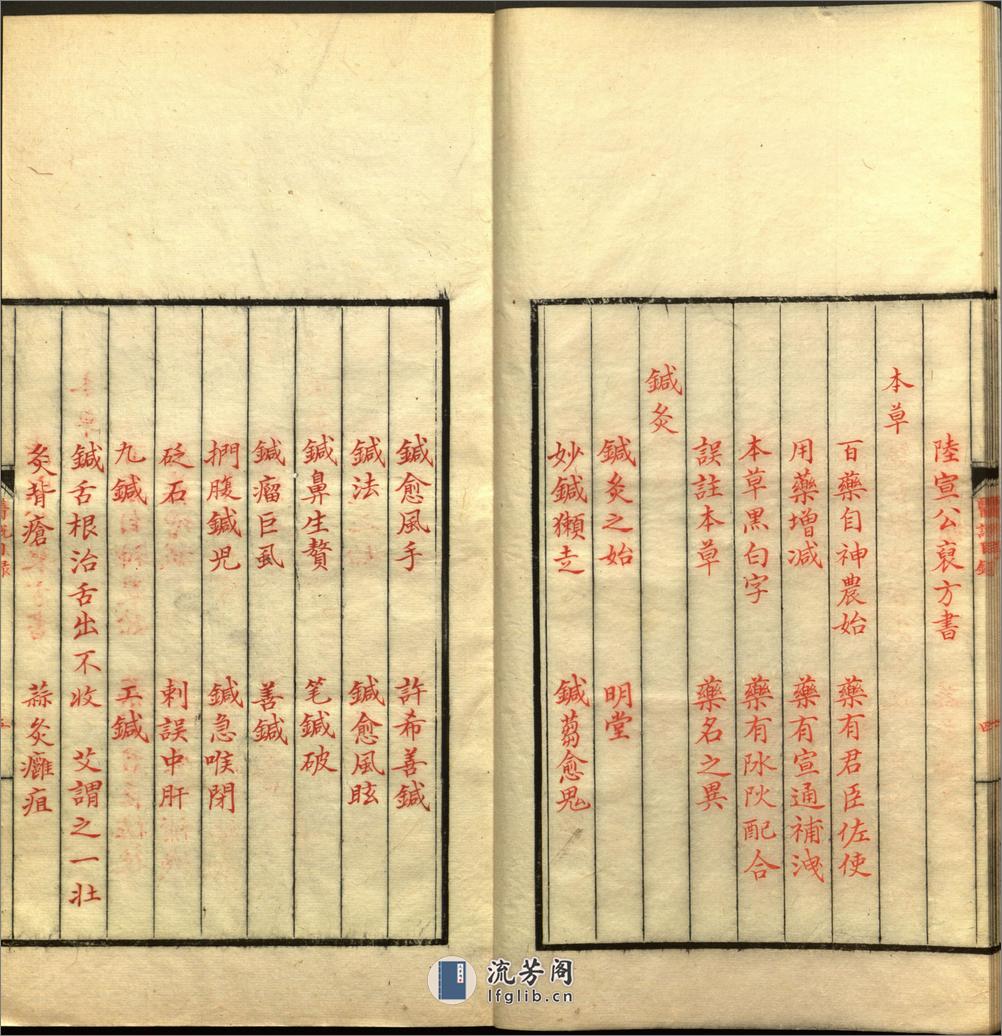 陸宣公裒方書
本草
百藥自神農始　藥有君臣佐使
用藥增減　藥有宣通補洩
本草黑白字　藥有阥阦配合
誤註本草　藥名之異
鍼灸
鍼灸之始　明堂
妙鍼獺走　鍼芻愈鬼
鍼愈風手　許希善鍼
鍼法　鍼愈風眩
鍼鼻生贅　笔鍼破
鍼瘤巨虱　善鍼
捫腹鍼児　鍼急喉閉
砭石　刺誤中肝
九鍼　工鍼
鍼舌根治舌出不收　艾謂之一壯
灸背瘡　蒜灸癰疽
四
流芳阁
lfglib.cn